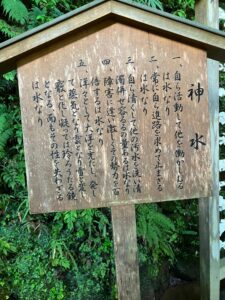 神水
一、自ら活動して他を動かしむるは水なり
二、常に自ら進路を求めて止まざるは水なり
三、自ら清くして他の汚水を洗い清濁併せ容るるの量あるは水なり
四、障害に逢い激しくその勢力を百倍するは水なり
五、洋々として大洋を充たし、発して蒸気となり雲となり雨となり雪と変じ霰と化し凝っては玲ろうたる鏡となる 而もその性を失わざるは水なり